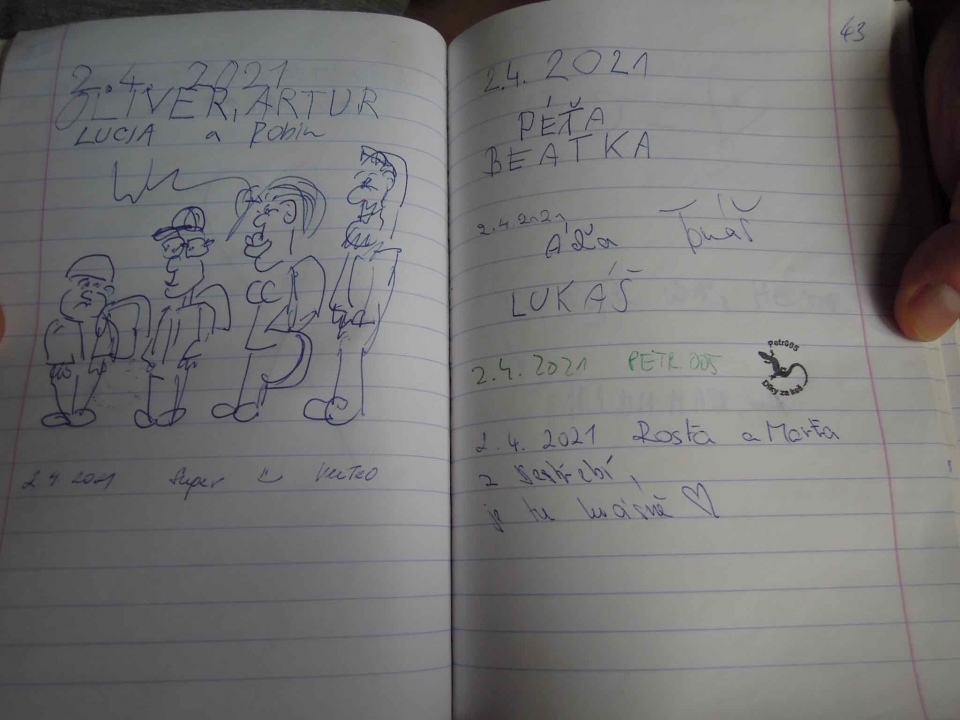 2.4. 2021
OLIVER, ARTUR
LUCIA a Robin
2.4. 2021 Super :)
43
2.4. 2021
PÉŤA
BEATKA
2.4.2021
Áďa Tomáš
LUKÁŠ
2.4. 2021 PETR 005
Petr005
Díky za keš
2.4. 2021 Rosťa a Marťa
z Sestřebí,
je tu krásně ♡